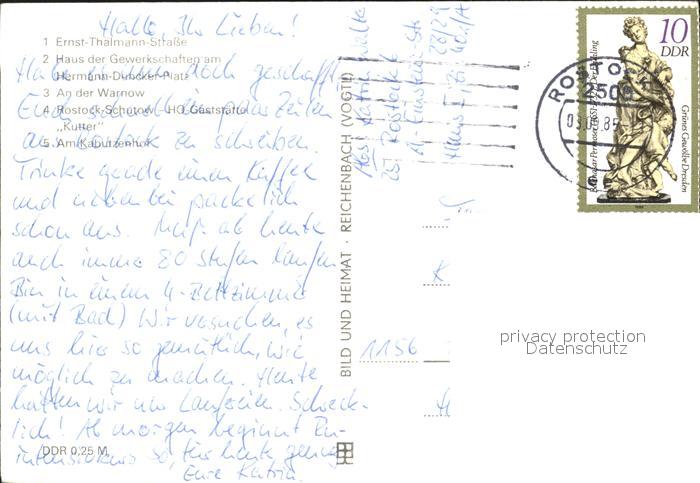 Hallo, Ihr Lieben!
Habe es nun doch geschafft
Euch ein paar Zeilen
aus Rostock zu schreiben.
Trinke gerade einen Kaffee
und nebenbei packe ich
schon aus. Muß ab heute
auch immer 80 Stufen laufen
Bin in einem 4-Bettzimmer
(mit Bad) Wir versuchen, es
uns hier so gemütlich, wie
möglich zu machen. Heute
hatten wir nur Lauferein. Schreck-
lich! Ab morgen beginnt
so, für heute genug
Eure Katrin
1 Ernst-Thälmann-Straße
2 Haus der Gewerkschaften am
Hermann-Duncker-Platz
3 An der Warnow
4 Rostock-Schutow - HO-Gaststätte
„Kutter"
5 Am Kabutzenhof
DDR 0,25 M
BILD UND HEIMAT · REICHENBACH (VOGTL)
Abs. Katrin
25 Rostock 6
A.-Einstein-Str. 28/29
1156
ROSTOCK
2500
10
DDR
Balthasar Permoser (1651-1732) Der Frühling
Grünes Gewölbe Dresden
privacy protection
Datenschutz